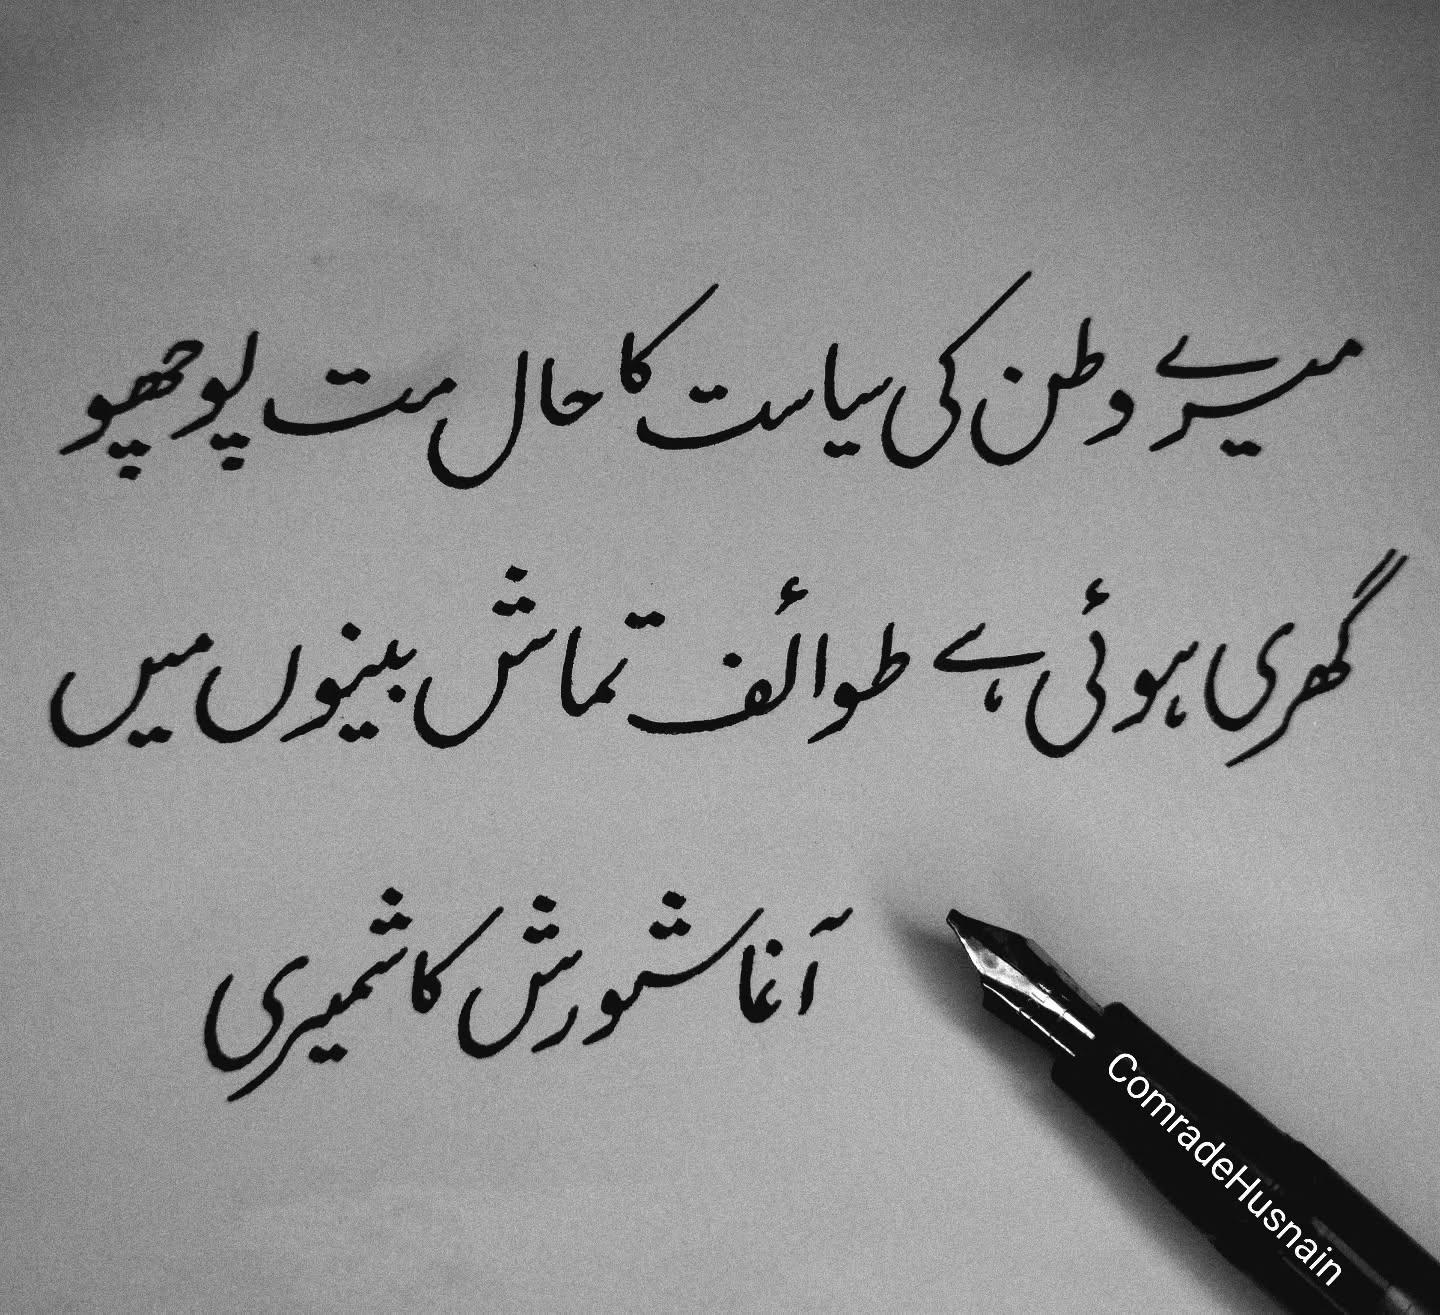 میرے وطن کی سیاست کا حال مت پوچھو
گھری ہوئی ہے طوائف تماش بینوں میں
آغا شورش کاشمیری
ComradeHusnain